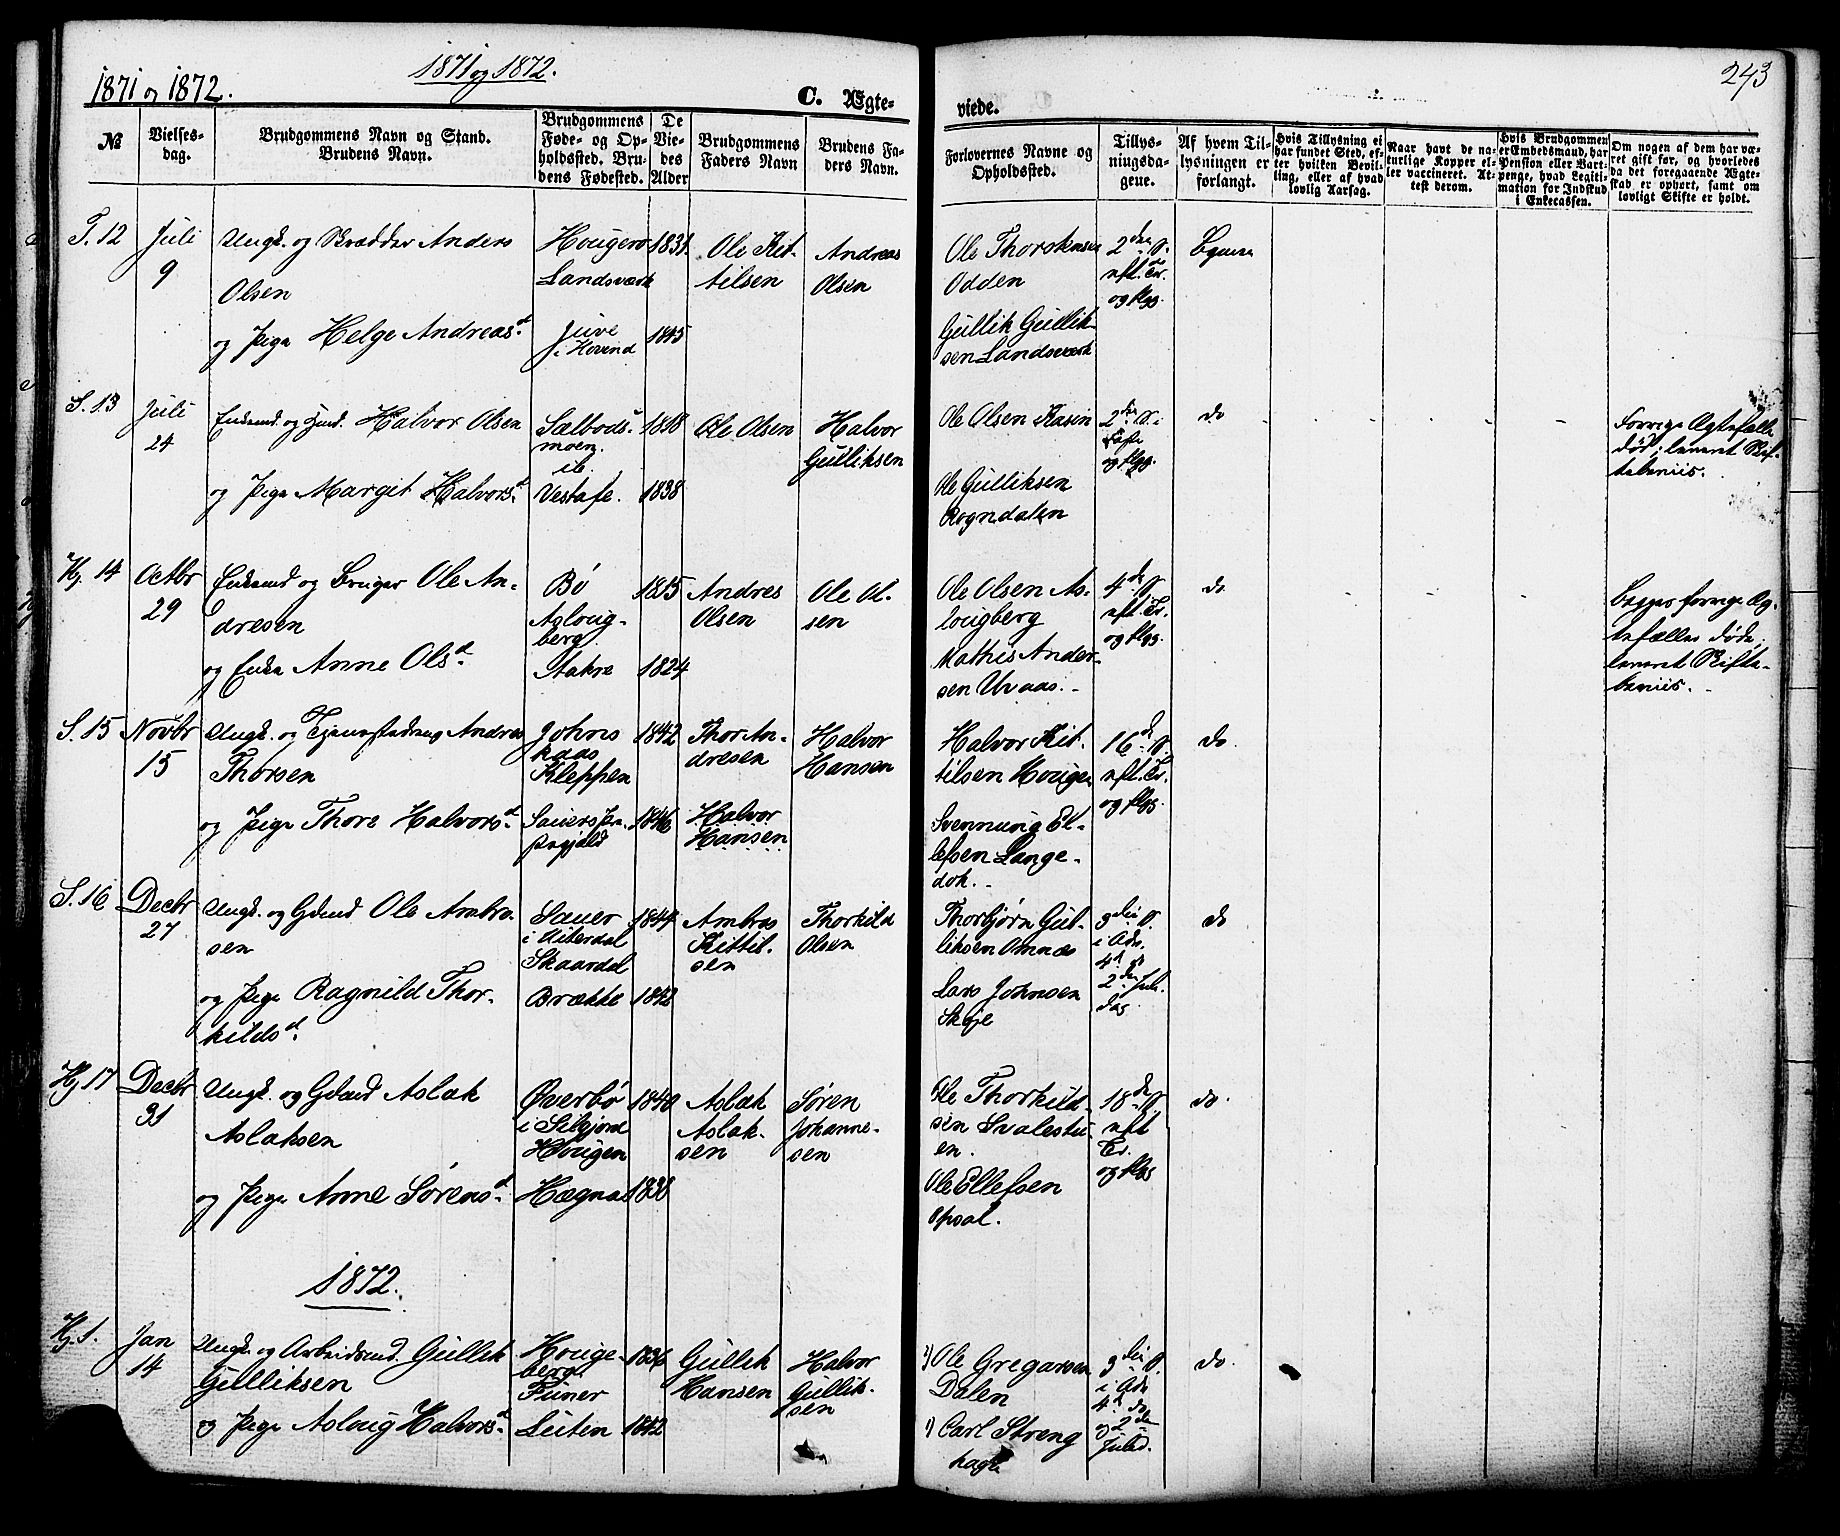 1871 og 1872.
1871 og 1872.
243
C. Ægte-
viede.
№
Vielses-
dag.
Brudgommens Navn og Stand.
Brudens Navn.
Brudgommens
Føde- og Op-
holdssted. Bru-
dens Fødested.
De
Vie-
des
Alder
Brudgommens
Faders Navn
Brudens Fa-
ders Navn.
Forlovernes Navne og
Opholdssted.
Tillys-
ningsda-
gene.
Af hvem Til-
lysningen er
forlangt.
Hvis Tillysning ei
har fundet Sted, ef-
ter hvilken Bevil-
ling, eller af hvad
lovlig Aarsag.
Naar havt de na-
turlige Kopper el-
ler vaccineret. At-
test derom.
Hvis Brudgommen
er Embedsmand, har
Pension eller Vart-
penge, hvad Legiti-
mation for Indskud
i Enkecassen.
Om nogen af dem har væ-
ret gift før, og hvorledes
da det foregaaende Ægte-
skab er ophørt, samt om
lovligt Skifte er holdt.
T. 12
Juli
9
Ungk. og Skrædder Anders
Olsen
og Pige Helge Andreasd.
Hougen
Landsværk
Juve
i Hovind
1831
1845
Ole Kit-
tilsen
Andreas
Olsen
Ole Thorstensen
Odden
Gullik Gullik-
sen Landsværk
2den S.
eft. Tr.
og flgg.
S. 13
Juli
24
Enkemd. og Gmd. Halvor Olsen
og Pige Margit Halvorsd.
Sælbods-
moen.
ib.
Vestafe.
1818
1838
Ole Olsen
Halvor
Gulliksen
Ole Olsen Kasin
Ole Gulliksen
Rogndalen
2den S. i
Faste
og flgg.
do
Forrige Ægtefælle
død; leveret Skif-
tebeviis.
Hj. 14
Octbr
29
Enkemd og Bruger Ole An-
dresen
og Enke Anne Olsd.
Bø
Asloug-
berg
Stakre
1815
1824
Andres
Olsen
Ole Ol-
sen
Ole Olsen As-
lougberg
Mathis Ander-
sen Uvaas.
4de S.
eft. Tr.
og flgg.
do
Begges forrige Æg-
tefæller døde;
leveret Skifte-
beviis.
S. 15
Novbr
15
Ungk. og Tjenestedreng Andres
Thorsen
og Pige Thore Halvorsd.
Johns
kaas
Kleppen
Sauers Præ-
stegjeld
1842
1846
Thor An-
dresen
Halvor
Hansen
Halvor
Hansen
Halvor Kit-
tilsen Hougen
Svennung El-
lefsen Lange-
dok.
16d. S.
eft. Tr.
og flgg.
do.
S. 16
Decbr
27
Ungk. og Gdmd Ole Ambro-
sen
og Pige Ragnild Thor-
kildsd.
Sauer
i Hiterdal
Skaardal
Brække
1844
1842
Ambros
Kittil-
sen
Thorkild
Olsen
Thorbjørn Gul-
liksen Omnæs
Lars Johnsen
Skoje
3die S.
i Adv.
4d. og
2den Jule
dag.
do
Hj. 17
Decbr
31
Ungk. og Gdmd Aslak
Aslaksen
og Pige Anne Sørensd.
Øverbø
i Siljord
Hougen
Hægna
1840
1838
Aslak
Aslak-
sen
Søren
Johanne-
sen
Ole Thorkild-
sen Svalestu-
en.
Ole Ellefsen
Opsal.
18de S.
eft
Tr.
og flgg
do.
1872.
Hj. 1.
Jan
14
Ungk. og Arbeidsmd. Gullik
Gulliksen
og Pige Asloug Halvorsd.
Houge-
berg.
Funer
Leiten
1836
1842
Gullik
Hansen
Halvor
Gullik-
sen
1) Ole Gregarsen
Dalen
1) Carl Streng
hagen
3die S.
i Adv
4d. do
og 2den
Juled.
do.